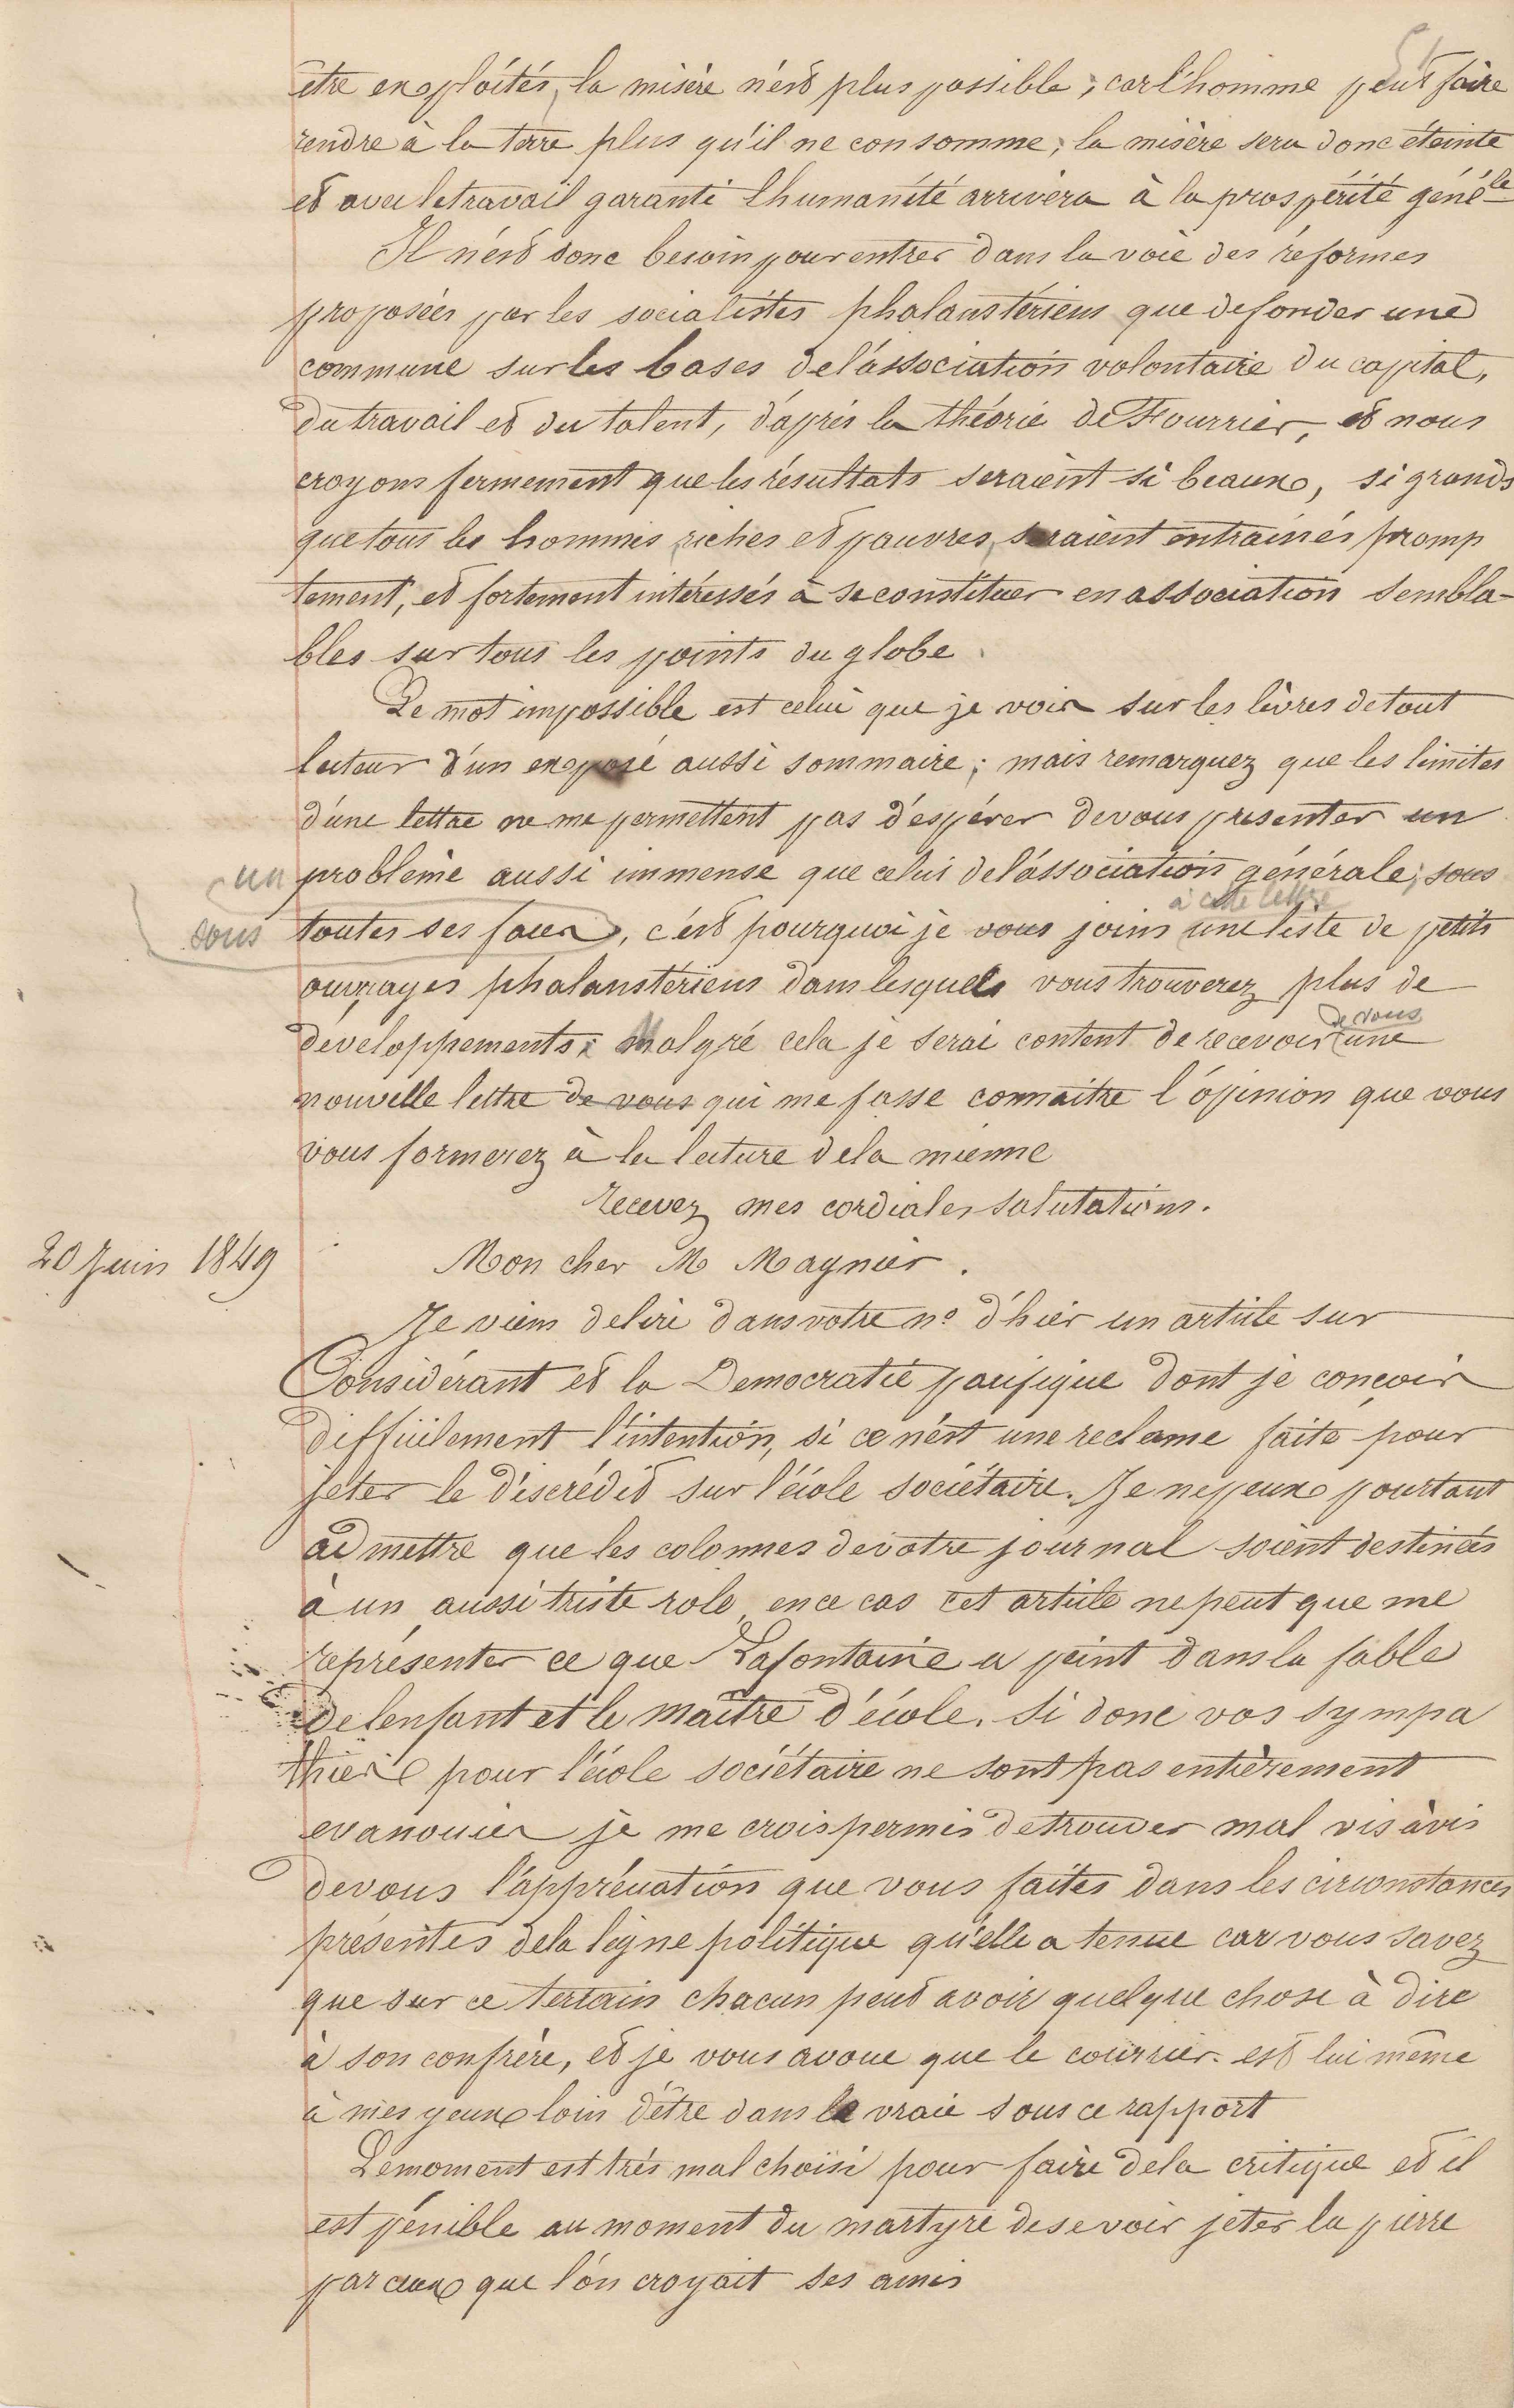 51
être exploités, la misère n'est plus possible; car l'homme peut faire
rendre à la terre plus qu'il ne consomme; la misère sera donc éteinte
et avec le travail garanti l'humanité arrivera à la prospérité génèle
Il n'est donc besoin pour entrer dans la voie des réformes
proposées par les socialistes phalanstériens que de fonder une
commune sur les bases de l'association volontaire du capital,
du travail et du talent, d'après la théorie de Fourrier, et nous
croyons fermement que les résultats seraient si beaux, si grands
que tous les hommes, riches et pauvres, seraient entrainés promp
tement, et fortement intéressés à se constituer en association sembla-
bles sur tous les points du globe.
Le mot impossible est celui que je vois sur les lèvres de tout
lecteur d'un exposé aussi sommaire; mais remarquez que les limites
d'une lettre ne me permettent pas d'espérer de vous présenter un
un problème aussi immense que celui de l'association générale; sous
à cette lettre
sous toutes ses faces, c'est pourquoi je vous joins une liste de petits
ouvrages phalanstériens dans lesquels vous trouverez plus de
de vous
développements; Malgré cela je serai content de recevoir une
nouvelle lettre de vous qui me fasse connaitre l'opinion que vous
vous formerez à la lecture de la mienne
recevez mes cordiales salutations.
20 Juin 1849 Mon cher M Magnier.
Je viens de lire dans votre no d'hier un article sur
Considérant et la Democratie pacifique dont je conçois
difficilement l'intention, si ce n'est une reclame faite pour
jeter le discrédit sur l'école sociétaire. Je ne peux pourtant
admettre que les colonnes de votre journal soient destinées
à un aussi triste role, en ce cas cet article ne peut que me
représenter ce que Lafontaine a peint dans la fable
de lenfant et le maître d'école. Si donc vos sympa
thies pour l'école sociétaire ne sont pas entièrement
evanouies je me crois permis de trouver mal vis à vis
de vous l'appréciation que vous faites dans les circonstances
présentes de la ligne politique qu'elle a tenue car vous savez
que sur ce terrain chacun peut avoir quelque chose à dire
à son confrère, et je vous avoue que le courrier est lui même
à mes yeux loin d'être dans le vraie sous ce rapport
Le moment est très mal choisi pour faire de la critique et il
est pénible au moment du martyre de se voir jeter la pierre
par ceux que l'on croyait ses amis